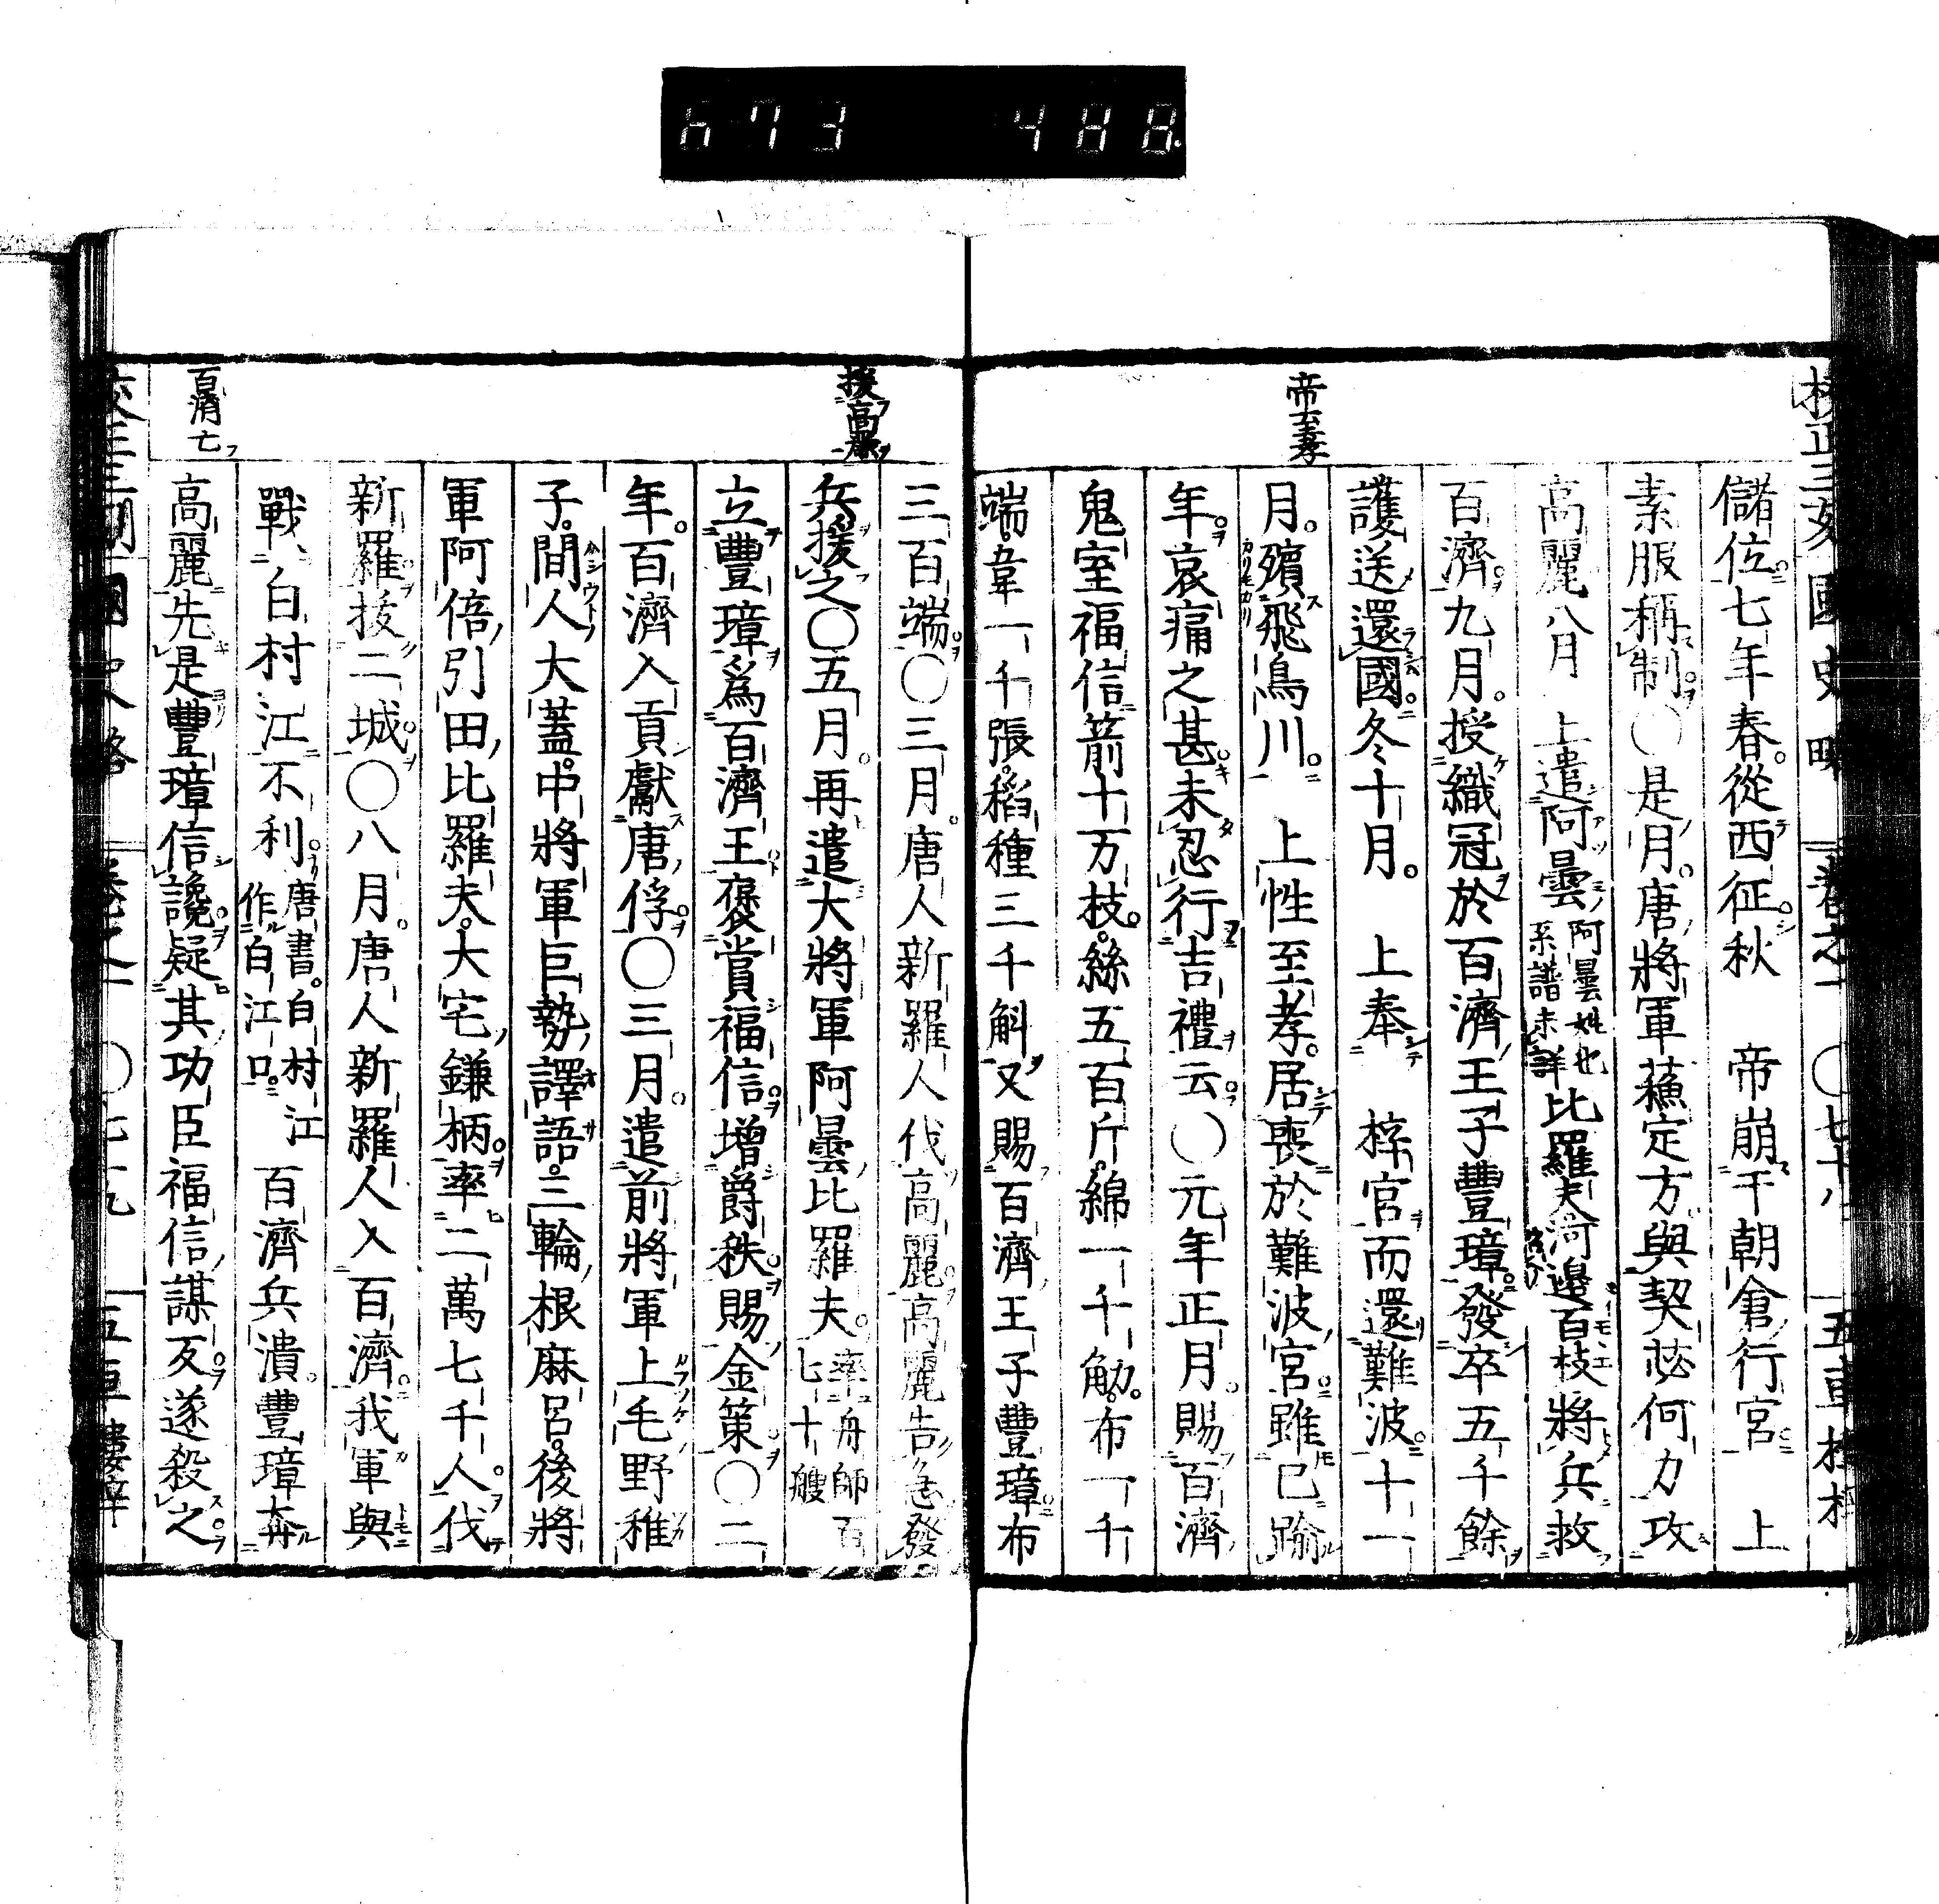 673 488
帝至孝
儲位七年春從西征秋 帝崩于朝倉行宮 上
素服稱制〇是月唐將軍蘓定方與契苾何力攻
高麗八月 上遣阿曇阿曇姓也系譜未詳比羅夫河邊百枝將兵救
百濟九月授織冠於百濟王子豐璋發卒五千餘
護送還國冬十月 上奉 梓宮而還難波十一
月殯飛鳥川 上性至孝居喪於難波宮雖已踰
年哀痛之甚未忍行吉禮云〇元年正月賜百濟
鬼室福信箭十万枝絲五百斤綿一千觔布一千
端韋一千張稻種三千斛又賜百濟王子豐璋布
援高麗
百濟亡
三百端〇三月唐人新羅人伐高麗高麗告急發
兵援之〇五月再遣大將軍阿曇比羅夫率舟師百七十艘
立豐璋爲百濟王褒賞福信增爵秩賜金策〇二
年百濟入貢獻唐俘〇三月遣前將軍上毛野稚
子間人大蓋中將軍巨勢譯語三輪根麻呂後將
軍阿倍引田比羅夫大宅鎌柄率二萬七千人伐
新羅拔二城〇八月唐人新羅人入百濟我軍與
戰白村江不利唐書白村江作白江口 百濟兵潰豐璋奔
高麗先是豐璋信讒疑其功臣福信謀反遂殺之